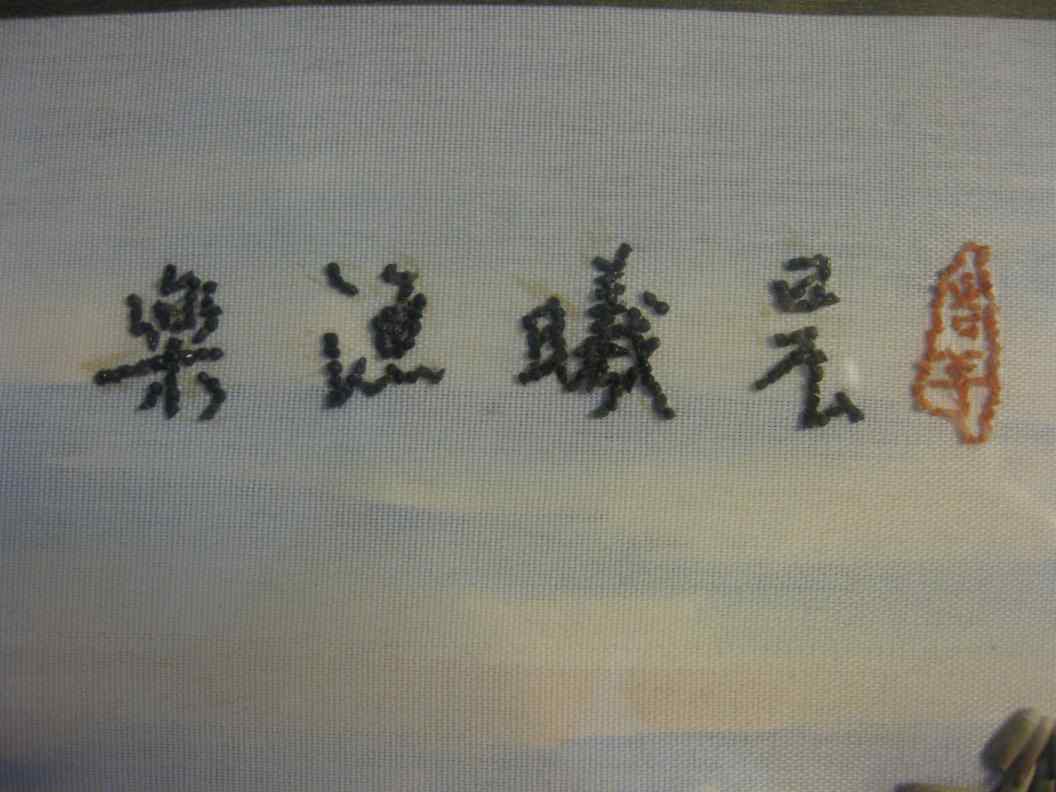 晨曦漁樂